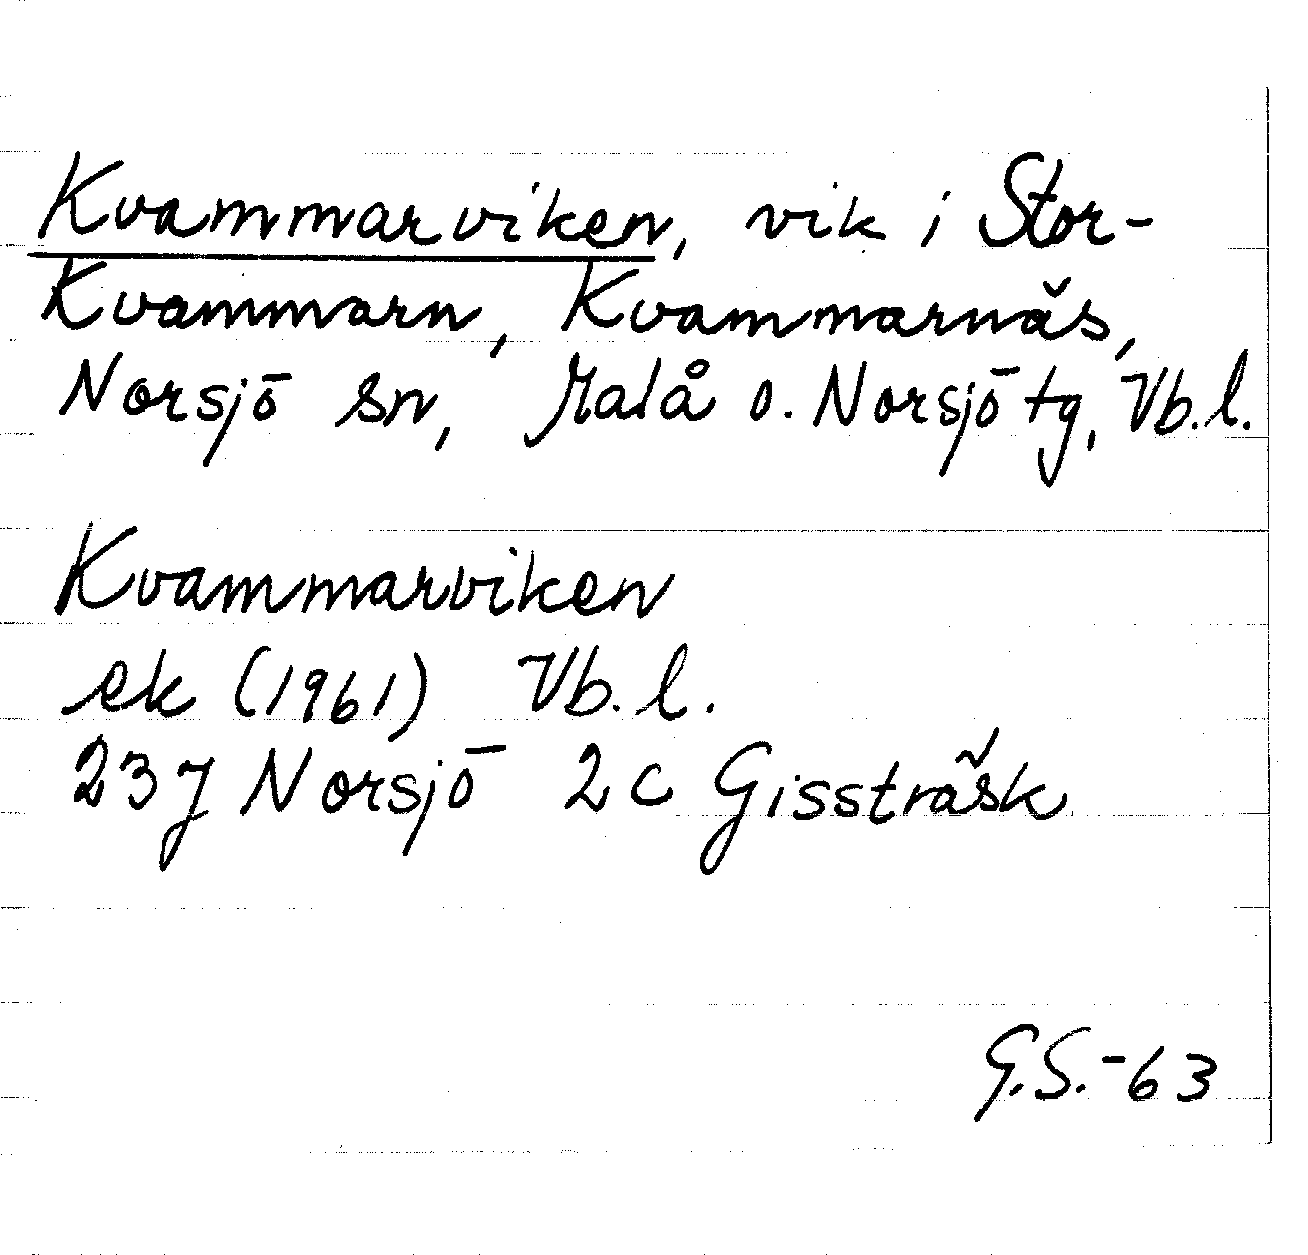 Kvammarviken, vik i Stor-
Kvammarn, Kvammarnäs,
Norsjö sn, Malå o. Norsjö tg, Vb. l.
Kvammarviken
ek (1961) Vb. l.
23J Norsjö 2c Gissträsk
G.S.-63